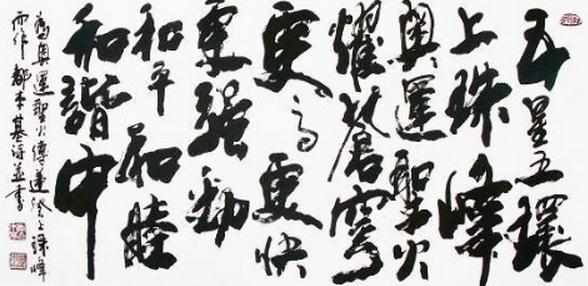 五星五環
上珠峰
奧運聖火
耀蒼穹
更高更快
更強勁
和平和睦
和諧中
為奧運聖火傳遞登上珠峰
而作 都本基詩並書